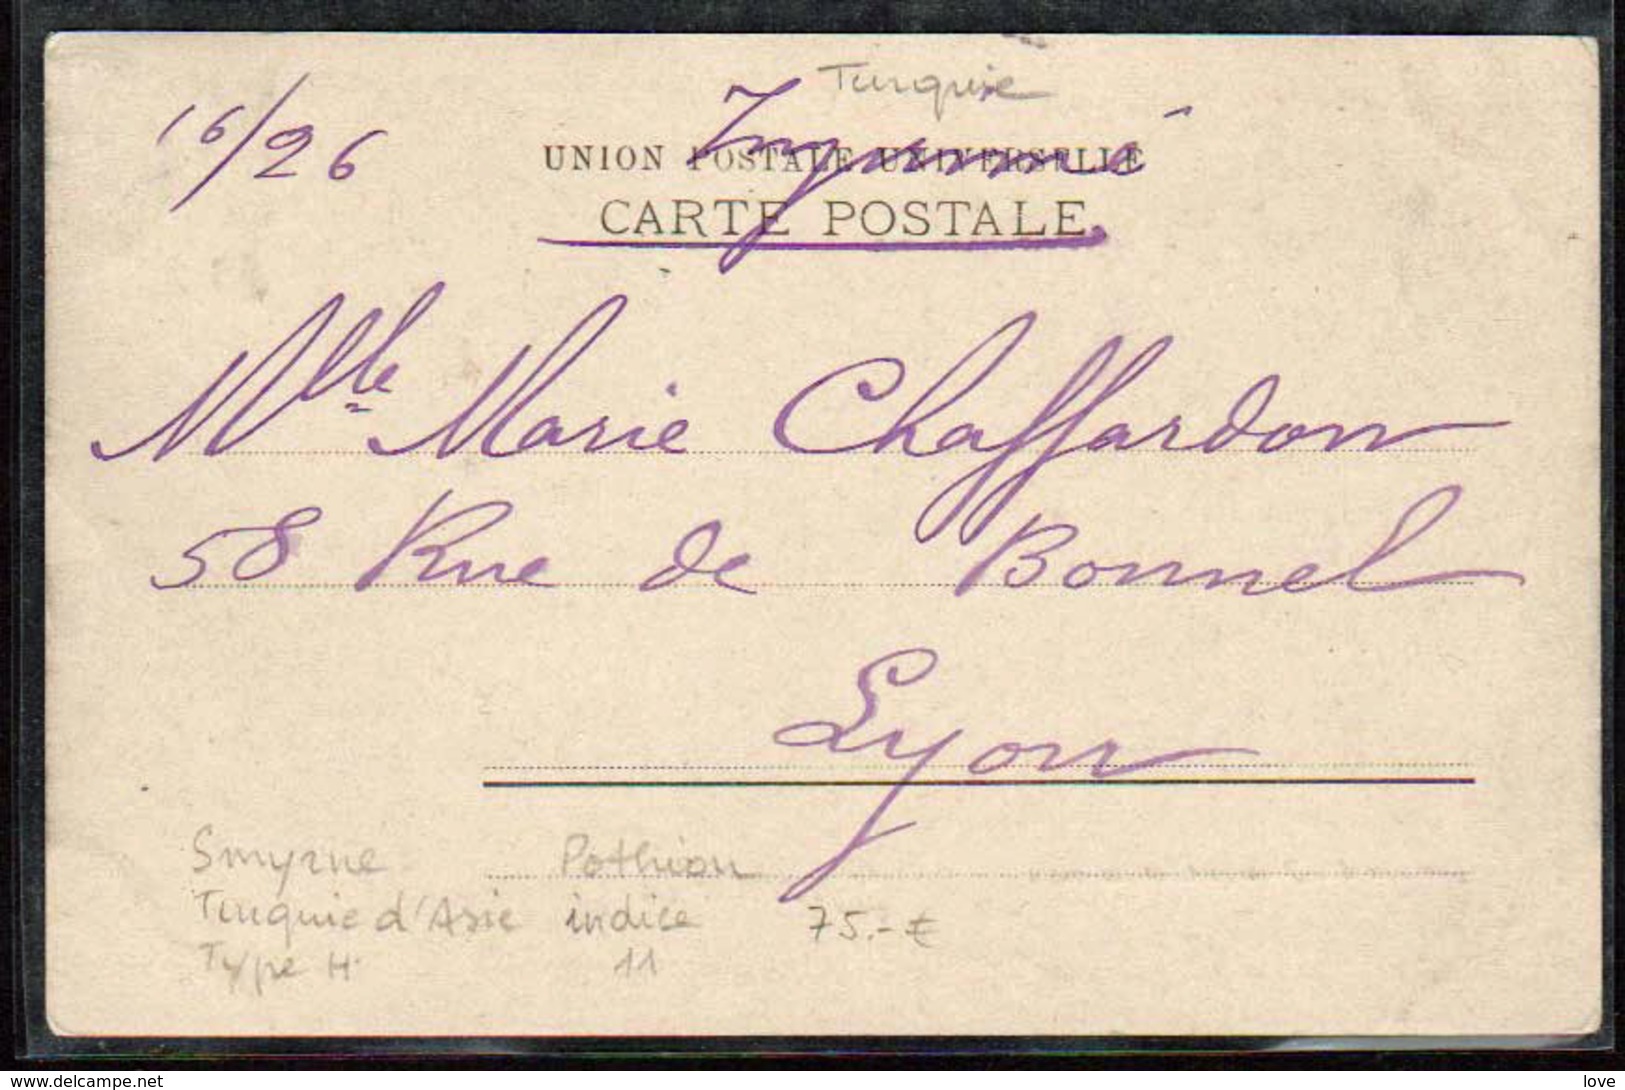 Turquie
16/26
Imprimé
UNION POSTALE UNIVERSELLE
CARTE POSTALE.
Mlle Marie Chaffardon
58 Rue de Bonnel
Lyon
Smyrne Pothion
Turquie d'Asie indice 75.-€
Type H. 11
www.delcampe.net
love